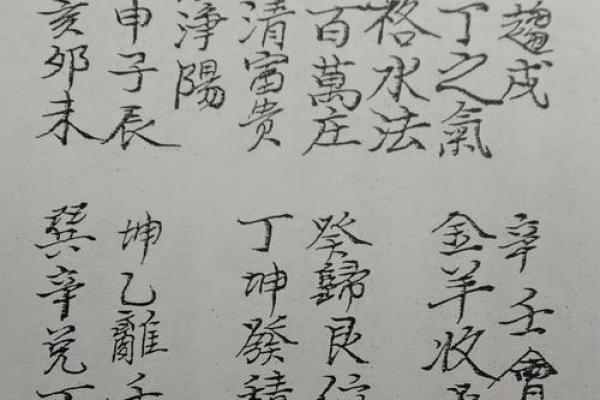 趨戌
丁之氣
格水法
百萬庄
清富貴
淨陽
申子辰
亥卯未
辛壬會
金羊收
癸歸艮位
丁坤發積
坤乙離壬
巽辛兌丁